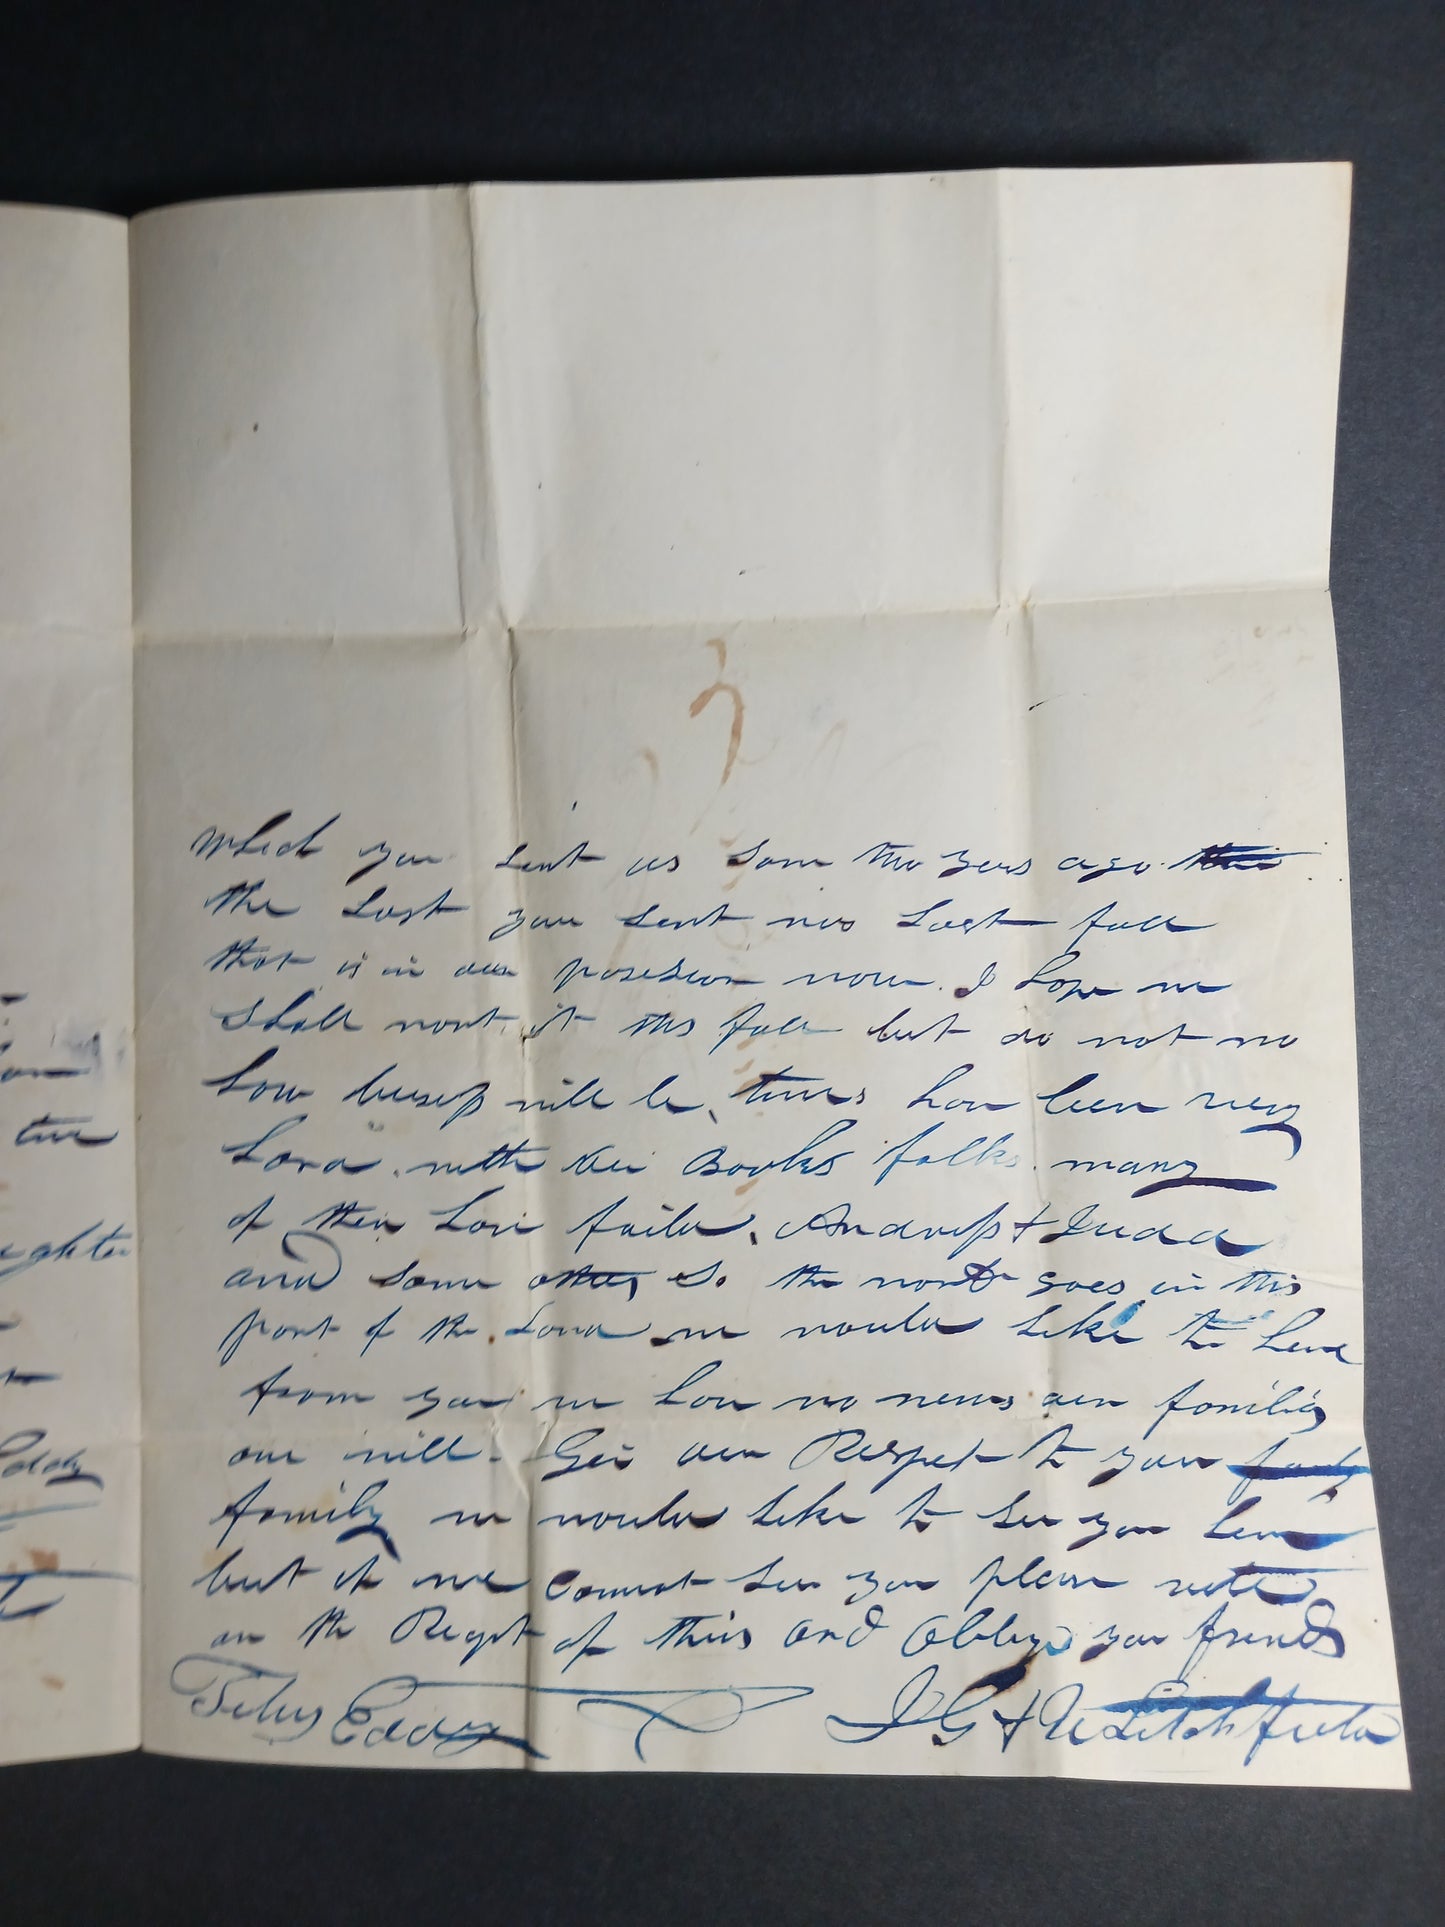 Which you sent us som two years ago
the Last you sent wos Last fall
that is in our posesion now. I hope we
Shall wont it this fall but do not no
how buisess will be, times have been very
hard with the Books folks many
of them have failed, Andross & Judd
and some others So the word goes in this
part of the Land we would like to hear
from you we have no news our families
are well. Give our Respect to your
family we would like to see you here
but if we cannot see you please write
on the Recept of this and Oblige your friends
Eddy J G & Litchfield
tive
ighter
Eddy